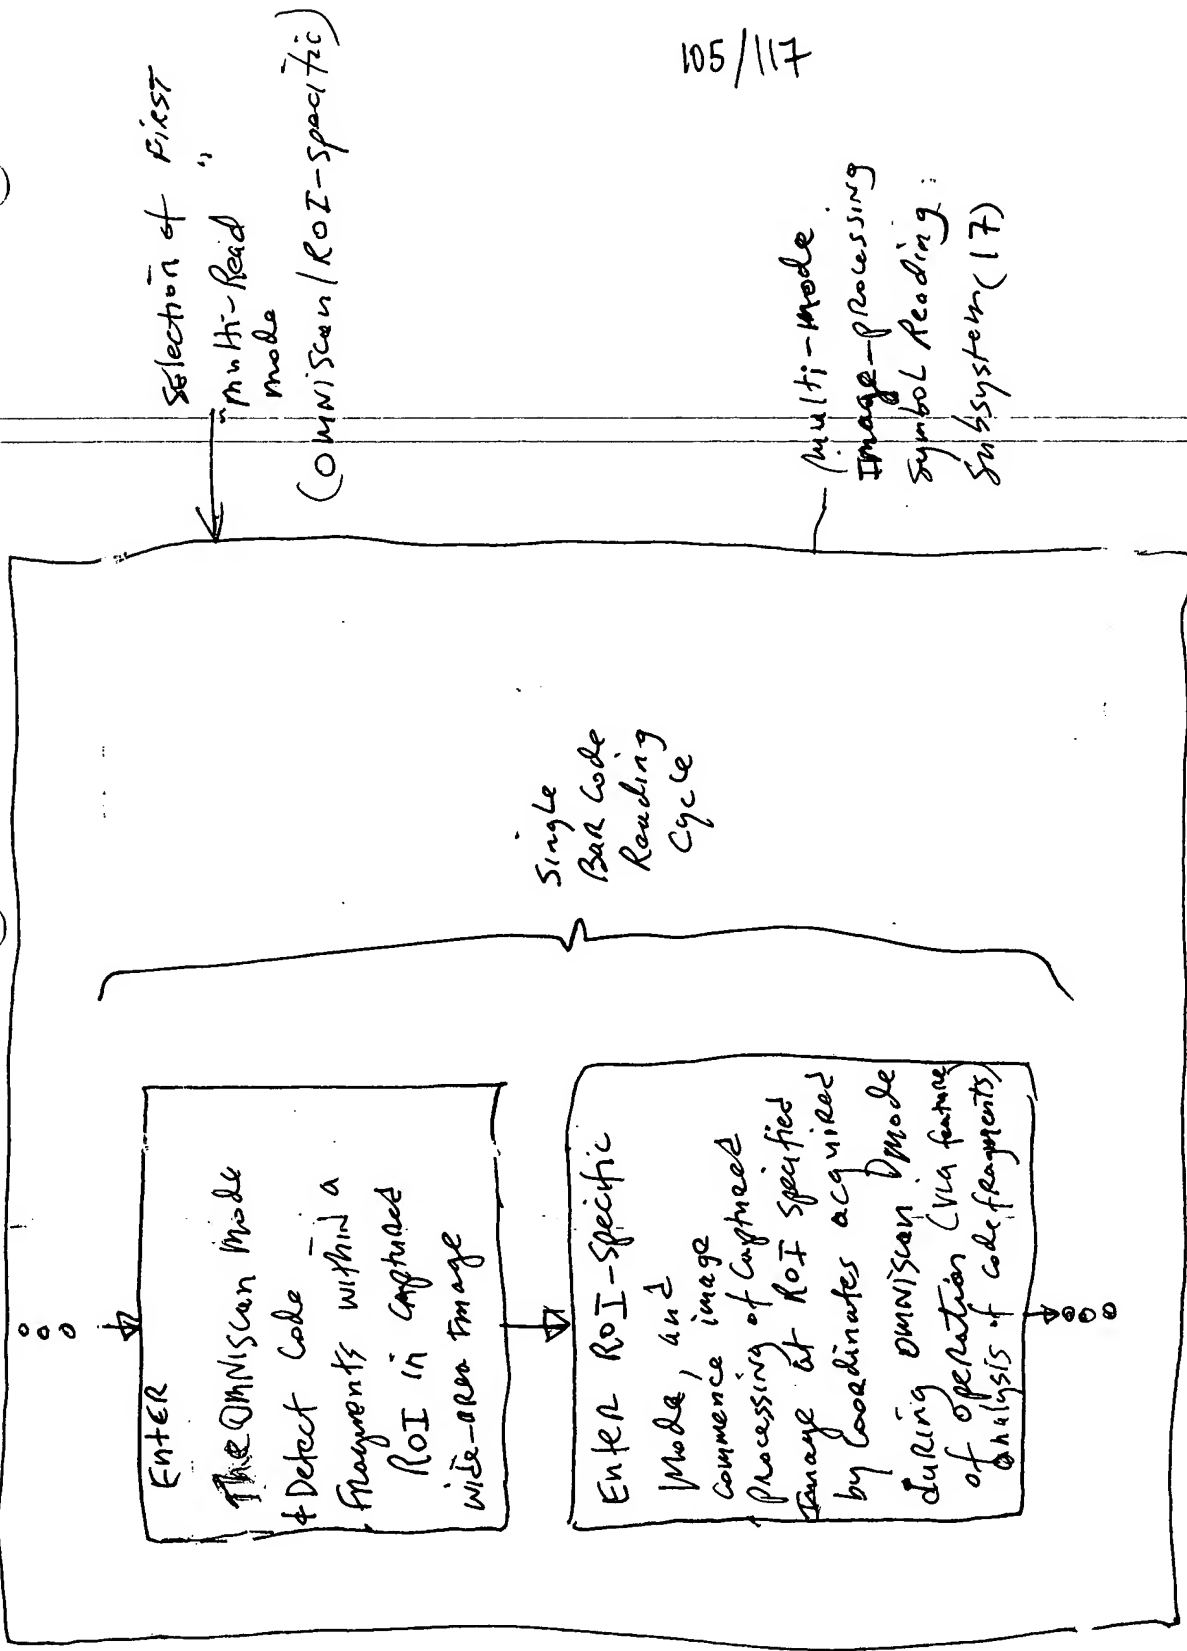 105/117
Selection of FIRST
"multi-Read"
mode
(OMNISCAN/ROI-specific)
multi-mode
Image-processing
Symbol Reading
Subsystem (17)
Single
Bar Code
Reading
Cycle
ENTER
The OMNISCAN Mode
& Detect Code
Fragments within a
ROI in captured
wide-area Image
Enter ROI-Specific
Mode, and
commence image
processing of captured
Image at ROI specified
by coordinates acquired
during OMNISCAN mode
of operation (via feature
analysis of code fragments)